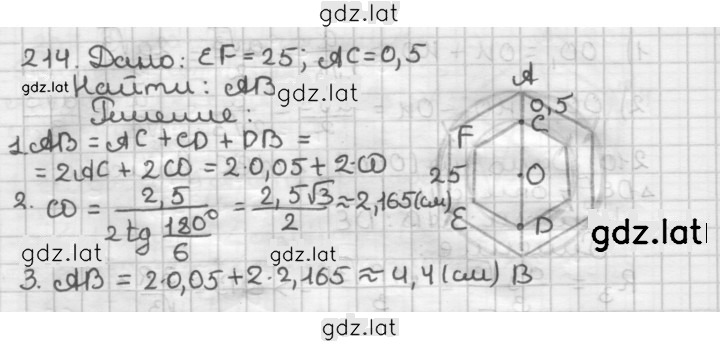 gdz.lat
214. Дано: EF = 25; AC = 0,5
gdz.lat Найти: AB
gdz.lat
Решение:
1. AB = AC + CD + DB =
= 2AC + 2CD = 2·0,05 + 2·CD
2. CO = 2,5 / 2tg 180°/6 = 2,5√3 / 2 ≈ 2,165 (см)
gdz.lat gdz.lat
3. AB = 2·0,05 + 2·2,165 ≈ 4,4 (см)
A
0,5
C
F
25
O
E
D
gdz.lat
B
gdz.lat